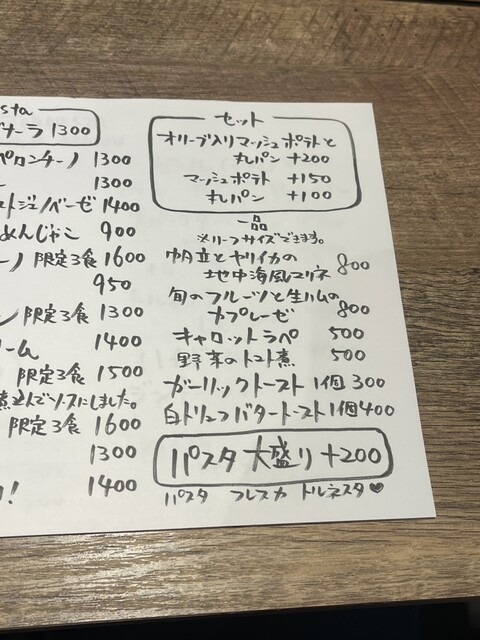 sta
ナーラ 1300
ペロンチーノ 1300
1300
トジェノベーゼ 1400
めんじゃこ 900
ーノ 限定3食 1600
950
ン 限定3食 1300
ーム 1400
限定3食 1500
煮込んでソースにしました。
限定3食 1600
1300
! 1400
セット
オリーブ入りマッシュポテトと
丸パン +200
マッシュポテト +150
丸パン +100
一品
※ハーフサイズできます。
帆立とヤリイカの
地中海風マリネ 800
旬のフルーツと生ハムの
カプレーゼ 800
キャロットラペ 500
野菜のトマト煮 500
ガーリックトースト 1個 300
白トリュフバタートースト 1個 400
パスタ 大盛り +200
パスタ フレスカ トルネスタ♥